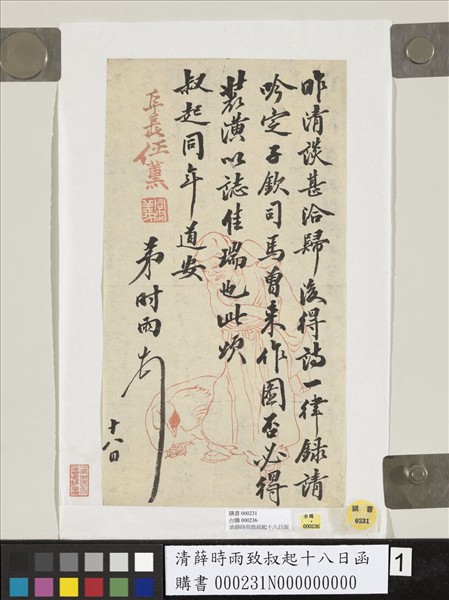 昨清談甚洽歸後得詩一律錄請
吟定子欽司馬曾來作圖否必得
裝潢以誌佳瑞也此頌
叔起同年道安
弟時雨頓
十八日
阜長任薰
購書 000231
台購 000236
清薛時雨致叔起十八日函
台購
000236
購書
0231
清薛時雨致叔起十八日函
購書 000231N000000000
1